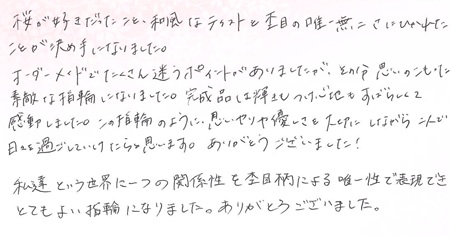 桜が好きだったこと、和風なテイストと杢目の唯一無二さにひかれた
ことが決め手になりました。
オーダーメイドでたくさん迷うポイントがありましたが、その分思いのこもった
素敵な指輪になりました。完成品は輝きもつけ心地もすばらしくて
感動しました。この指輪のように、思いやりや優しさを大切にしながら二人で
日々を過ごしていけたらと思います。ありがとうございました!
私達という世界に一つの関係性を杢目柄による唯一性で表現でき
とてもよい指輪になりました。ありがとうございました。